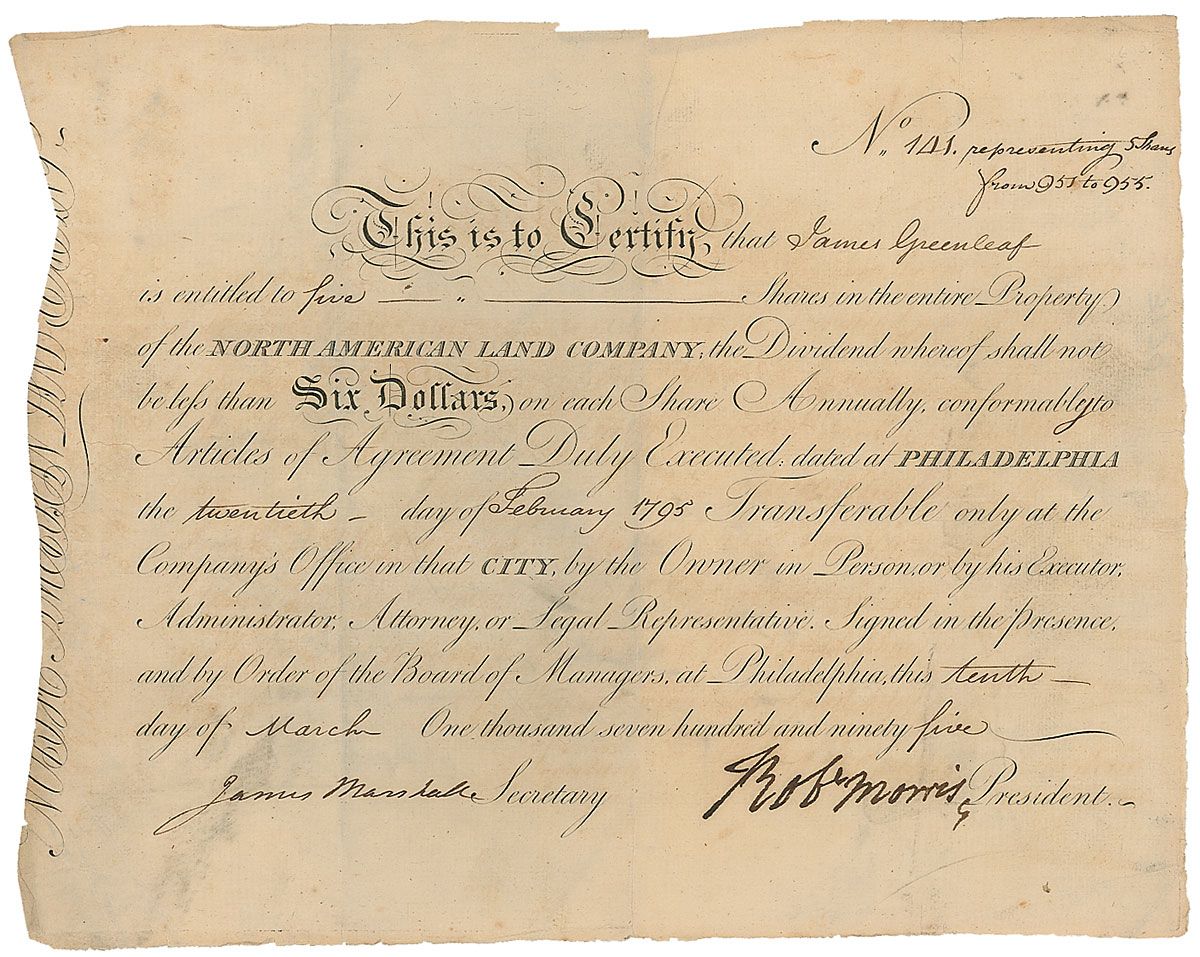 No. 141. representing 5 Shares
from 951 to 955.
This is to Certify, that James Greenleaf
is entitled to five — " — Shares in the entire Property
of the NORTH AMERICAN LAND COMPANY; the Dividend whereof shall not
be less than Six Dollars, on each Share Annually, conformably to
Articles of Agreement Duly Executed: dated at PHILADELPHIA
the twentieth — day of February 1795 Transferable only at the
Company's Office in that CITY, by the Owner in Person, or by his Executor,
Administrator, Attorney, or Legal Representative. Signed in the presence,
and by Order of the Board of Managers, at Philadelphia, this tenth —
day of March One thousand seven hundred and ninety five
James Marshall Secretary Robt Morris, President.